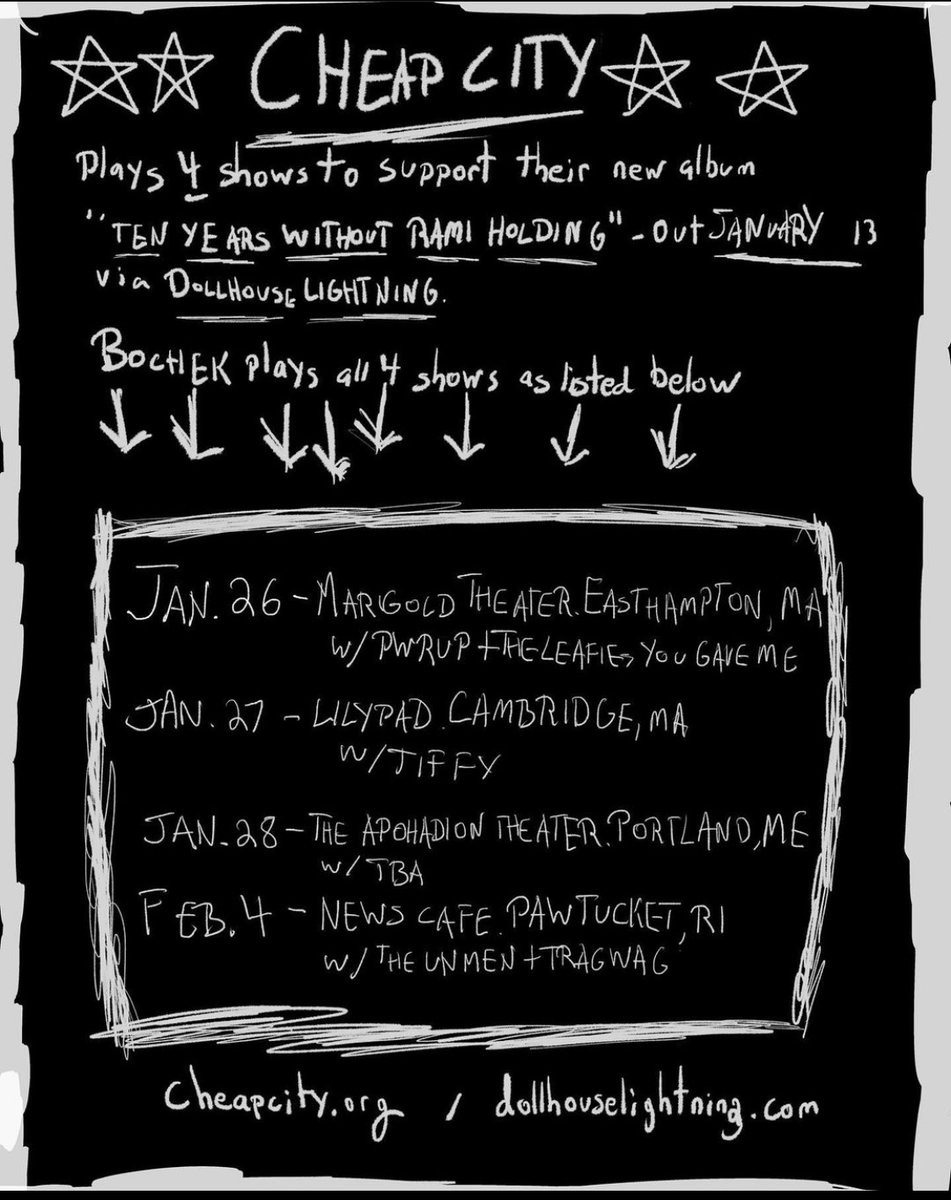 CHEAP CITY
Plays 4 shows to support their new album
"TEN YEARS WITHOUT RAMI HOLDING" - out JANUARY 13
via DOLLHOUSE LIGHTNING.
BOCHEK plays all 4 shows as listed below
JAN. 26 - MARIGOLD THEATER. EASTHAMPTON, MA
w/ PWRUP + THE LEAFIES YOU GAVE ME
JAN. 27 - LILYPAD. CAMBRIDGE, MA
W/ TIFFY
JAN. 28 - THE APOHADION THEATER. PORTLAND, ME
w/ TBA
FEB. 4 - NEWS CAFE. PAWTUCKET, RI
w/ THE UNMEN + TRAGWAG
cheapcity.org / dollhouselightning.com